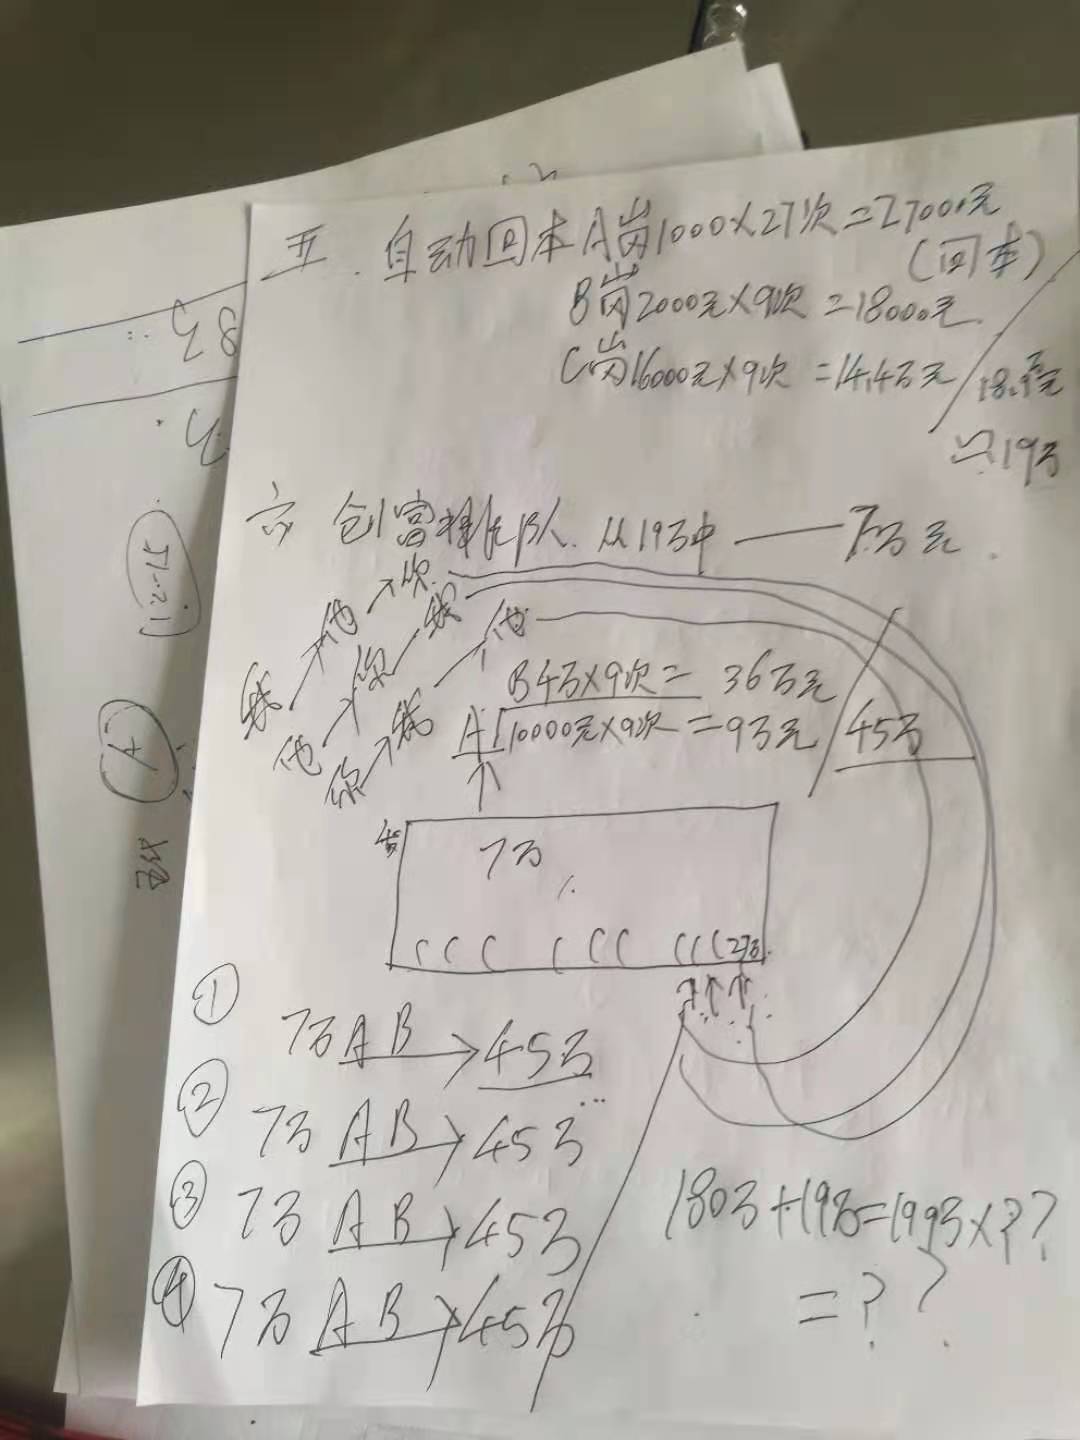 五.自动回本A岗1000×27次=27000元
(回本)
B岗2000元×9次=18000元
C岗16000元×9次=14.4万元/18.9万元
≌19万
六 创富排队.从19万中——7万元.
我→他→你
他→你→我
你→我→他
B4万×9次=36万元
A 10000元×9次=9万元/45万
7万
C C C C C C C C C 2万
① 7万AB→45万
② 7万AB→45万
③ 7万AB→45万
④ 7万AB→45万
180万+19万=199万×??
=??
83
A